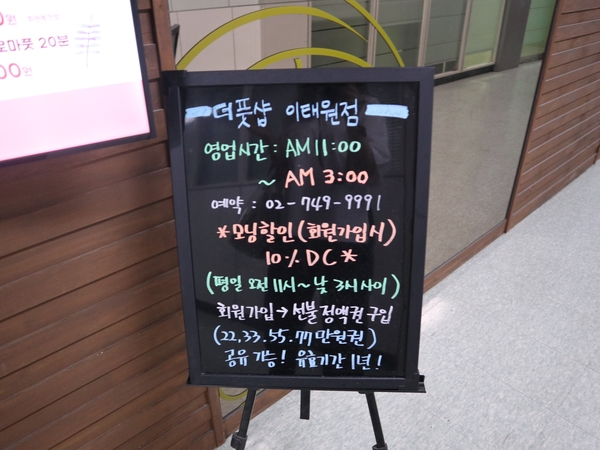 0원
로마풋 20분
00원
더풋샵 이태원점
영업시간 : AM 11:00
~ AM 3:00
예약 : 02-749-9991
*모닝할인(회원가입시)
10% DC*
(평일 오전 11시~낮 3시 사이)
회원가입→선불정액권 구입
(22.33.55.77만원권)
공유 가능! 유효기간 1년!